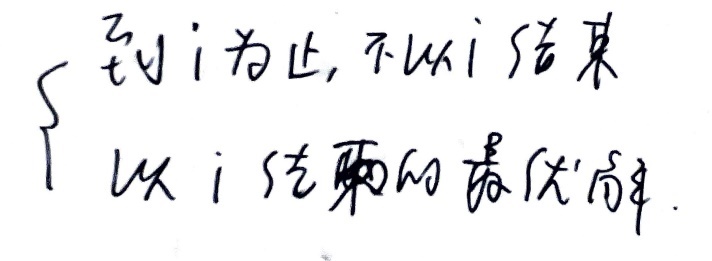 到i为止,不以i结束
以i结束的最优解.